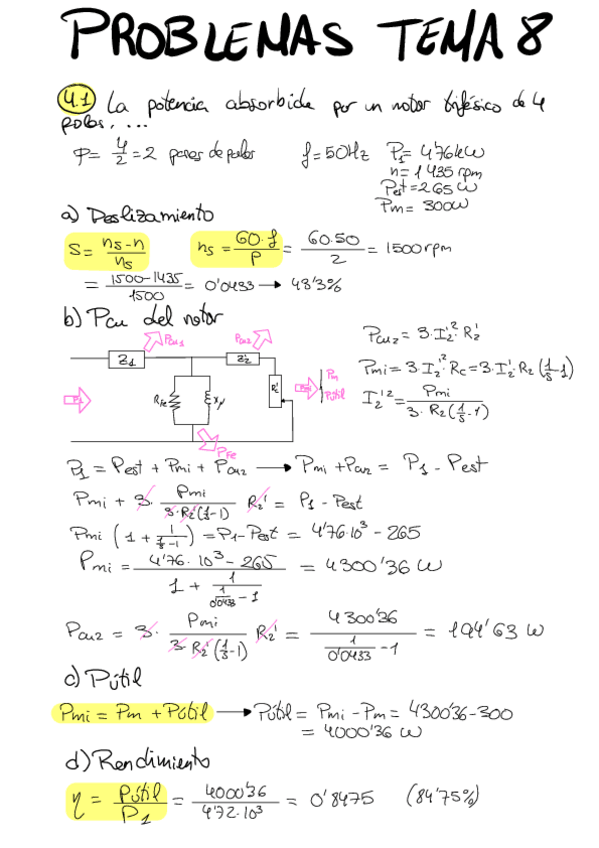 PROBLEMAS TEMA 8
4.1 La potencia absorbida por un motor trifásico de 4
polos, ...
P = 4/2 = 2 pares de polos f = 50Hz P1 = 4'76kW
n = 1435 rpm
Pest = 265 W
Pm = 300W
a) Deslizamiento
S = (ns-n)/ns ns = 60·f/P = 60·50/2 = 1500 rpm
= (1500-1435)/1500 = 0'0433 → 48'3%
b) Pcu del motor
Pcu1 Pcu2
Z1 Z2' RFe Xμ Rc' P1 Pmi Pm Pútil PFe
Pcu2 = 3·I2'²·R2'
Pmi = 3·I2'²·Rc = 3·I2'·R2 (1/s - 1)
I2'² = Pmi/(3·R2(1/s - 1))
P1 = Pest + Pmi + Pcu2 → Pmi + Pcu2 = P1 - Pest
Pmi + 3· Pmi/(3·R2'(1/s-1)) R2' = P1 - Pest
Pmi (1 + 1/(1/s - 1)) = P1 - Pest = 4'76·10³ - 265
Pmi = (4'76·10³ - 265)/(1 + 1/(1/0'0433 - 1)) = 4300'36 W
Pcu2 = 3· Pmi/(3·R2'(1/s-1)) R2' = 4300'36/(1/0'0433 - 1) = 194'63 W
c) Pútil
Pmi = Pm + Pútil → Pútil = Pmi - Pm = 4300'36-300
= 4000'36 W
d) Rendimiento
η = Pútil/P1 = 4000'36/4'72·10³ = 0'8475 (84'75%)